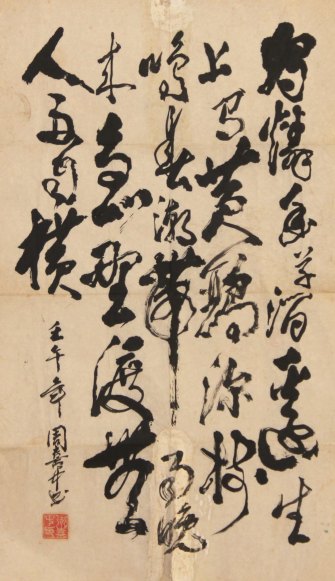 獨憐幽草澗邊生
上有黄鸝深樹
鳴春潮帶雨晚
来急野渡無
人舟自横
壬午年 周